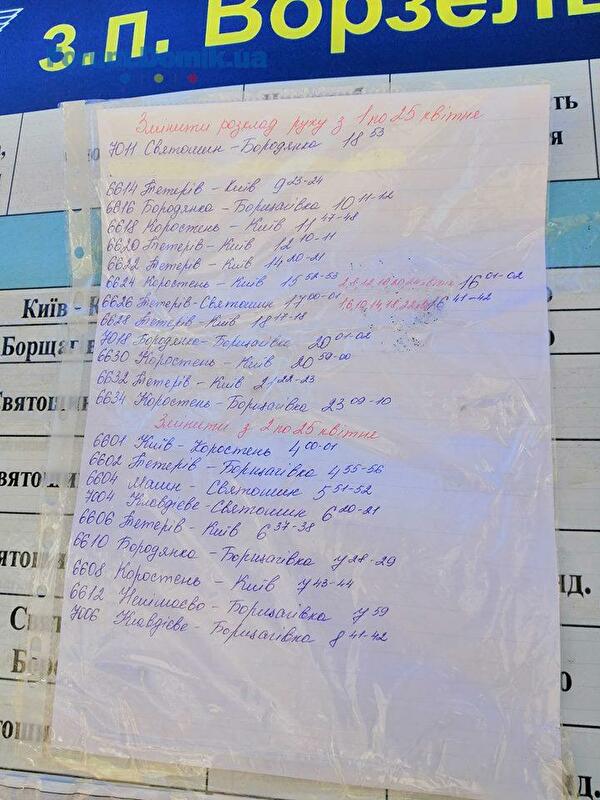 forum.domik.ua
з.п. Ворзель
Змінити розклад руху з 1 по 25 квітне
7011 Святошин - Бородянка 18 53
6614 Тетерів - Київ 9 23-24
6816 Бородянка - Борщагівка 10 11-12
6618 Коростень - Київ 11 47-48
6620 Тетерів - Київ 12 10-11
6622 Тетерів - Київ 14 20-21
6624 Коростень - Київ 15 52-53 16 01-02
6626 Тетерів - Святошин 17 00-01 16 41-42
6628 Тетерів - Київ 18 17-18
7018 Бородянка - Борщагівка 20 01-02
6630 Коростень - Київ 20 59-00
6632 Тетерів - Київ 21 22-23
6634 Коростень - Борщагівка 23 09-10
Змінити з 2 по 25 квітне
6601 Київ - Коростень 4 00-01
6602 Тетерів - Борщагівка 4 55-56
6604 Малин - Святошин 5 51-52
7004 Клавдієве - Святошин 6 20-21
6606 Тетерів - Київ 6 37-38
6610 Бородянка - Борщагівка 7 28-29
6608 Коростень - Київ 7 43-44
6612 Борщагівка 7 59
7006 Клавдієве - Борщагівка 8 41-42
Київ - К
Борщаг
Святоши